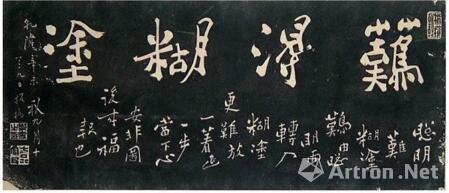 難得糊塗
聰明
難糊塗
難由聰
明而
轉入
糊塗
更難放
一着退
一步
當下心
安非圖
後來福
報也
乾隆辛未秋九月十
有九日板橋
Artron.Net